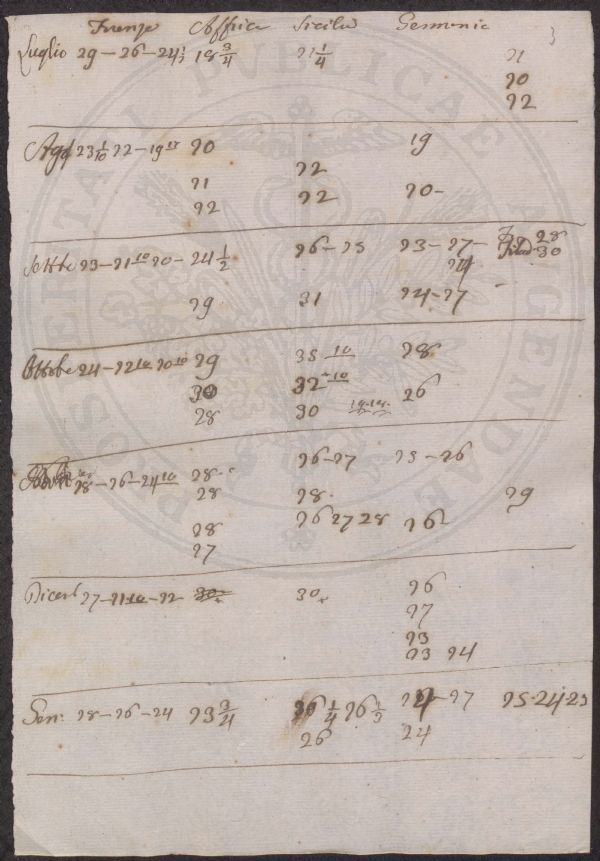 Firenze Affrica Sicilia Germania 3
Luglio 29-26-24 1/3 18 3/4 21 1/4 21
20
22
23 1/10 22-19 20 19
22
21
22 22 20-
Settbe 23-21 10 20- 24 1/2 26-25 23-27- 28
24 30
29 31 24-27
Ottobe 24-22 10 20 10 29 35 10 28
30 32 10 26
28 30
26-27 25-26
28-26-24 10 28
28 28 29
26 27 28 26
28
27
Dicerb 27-21 10-22 30 30 26
27
23
23 24
Gen: 28-26-24 23 3/4 26 1/4 26 1/2 24-27 25-24-23
26 24
POSTERITATI PVBLICAE AVGENDAE